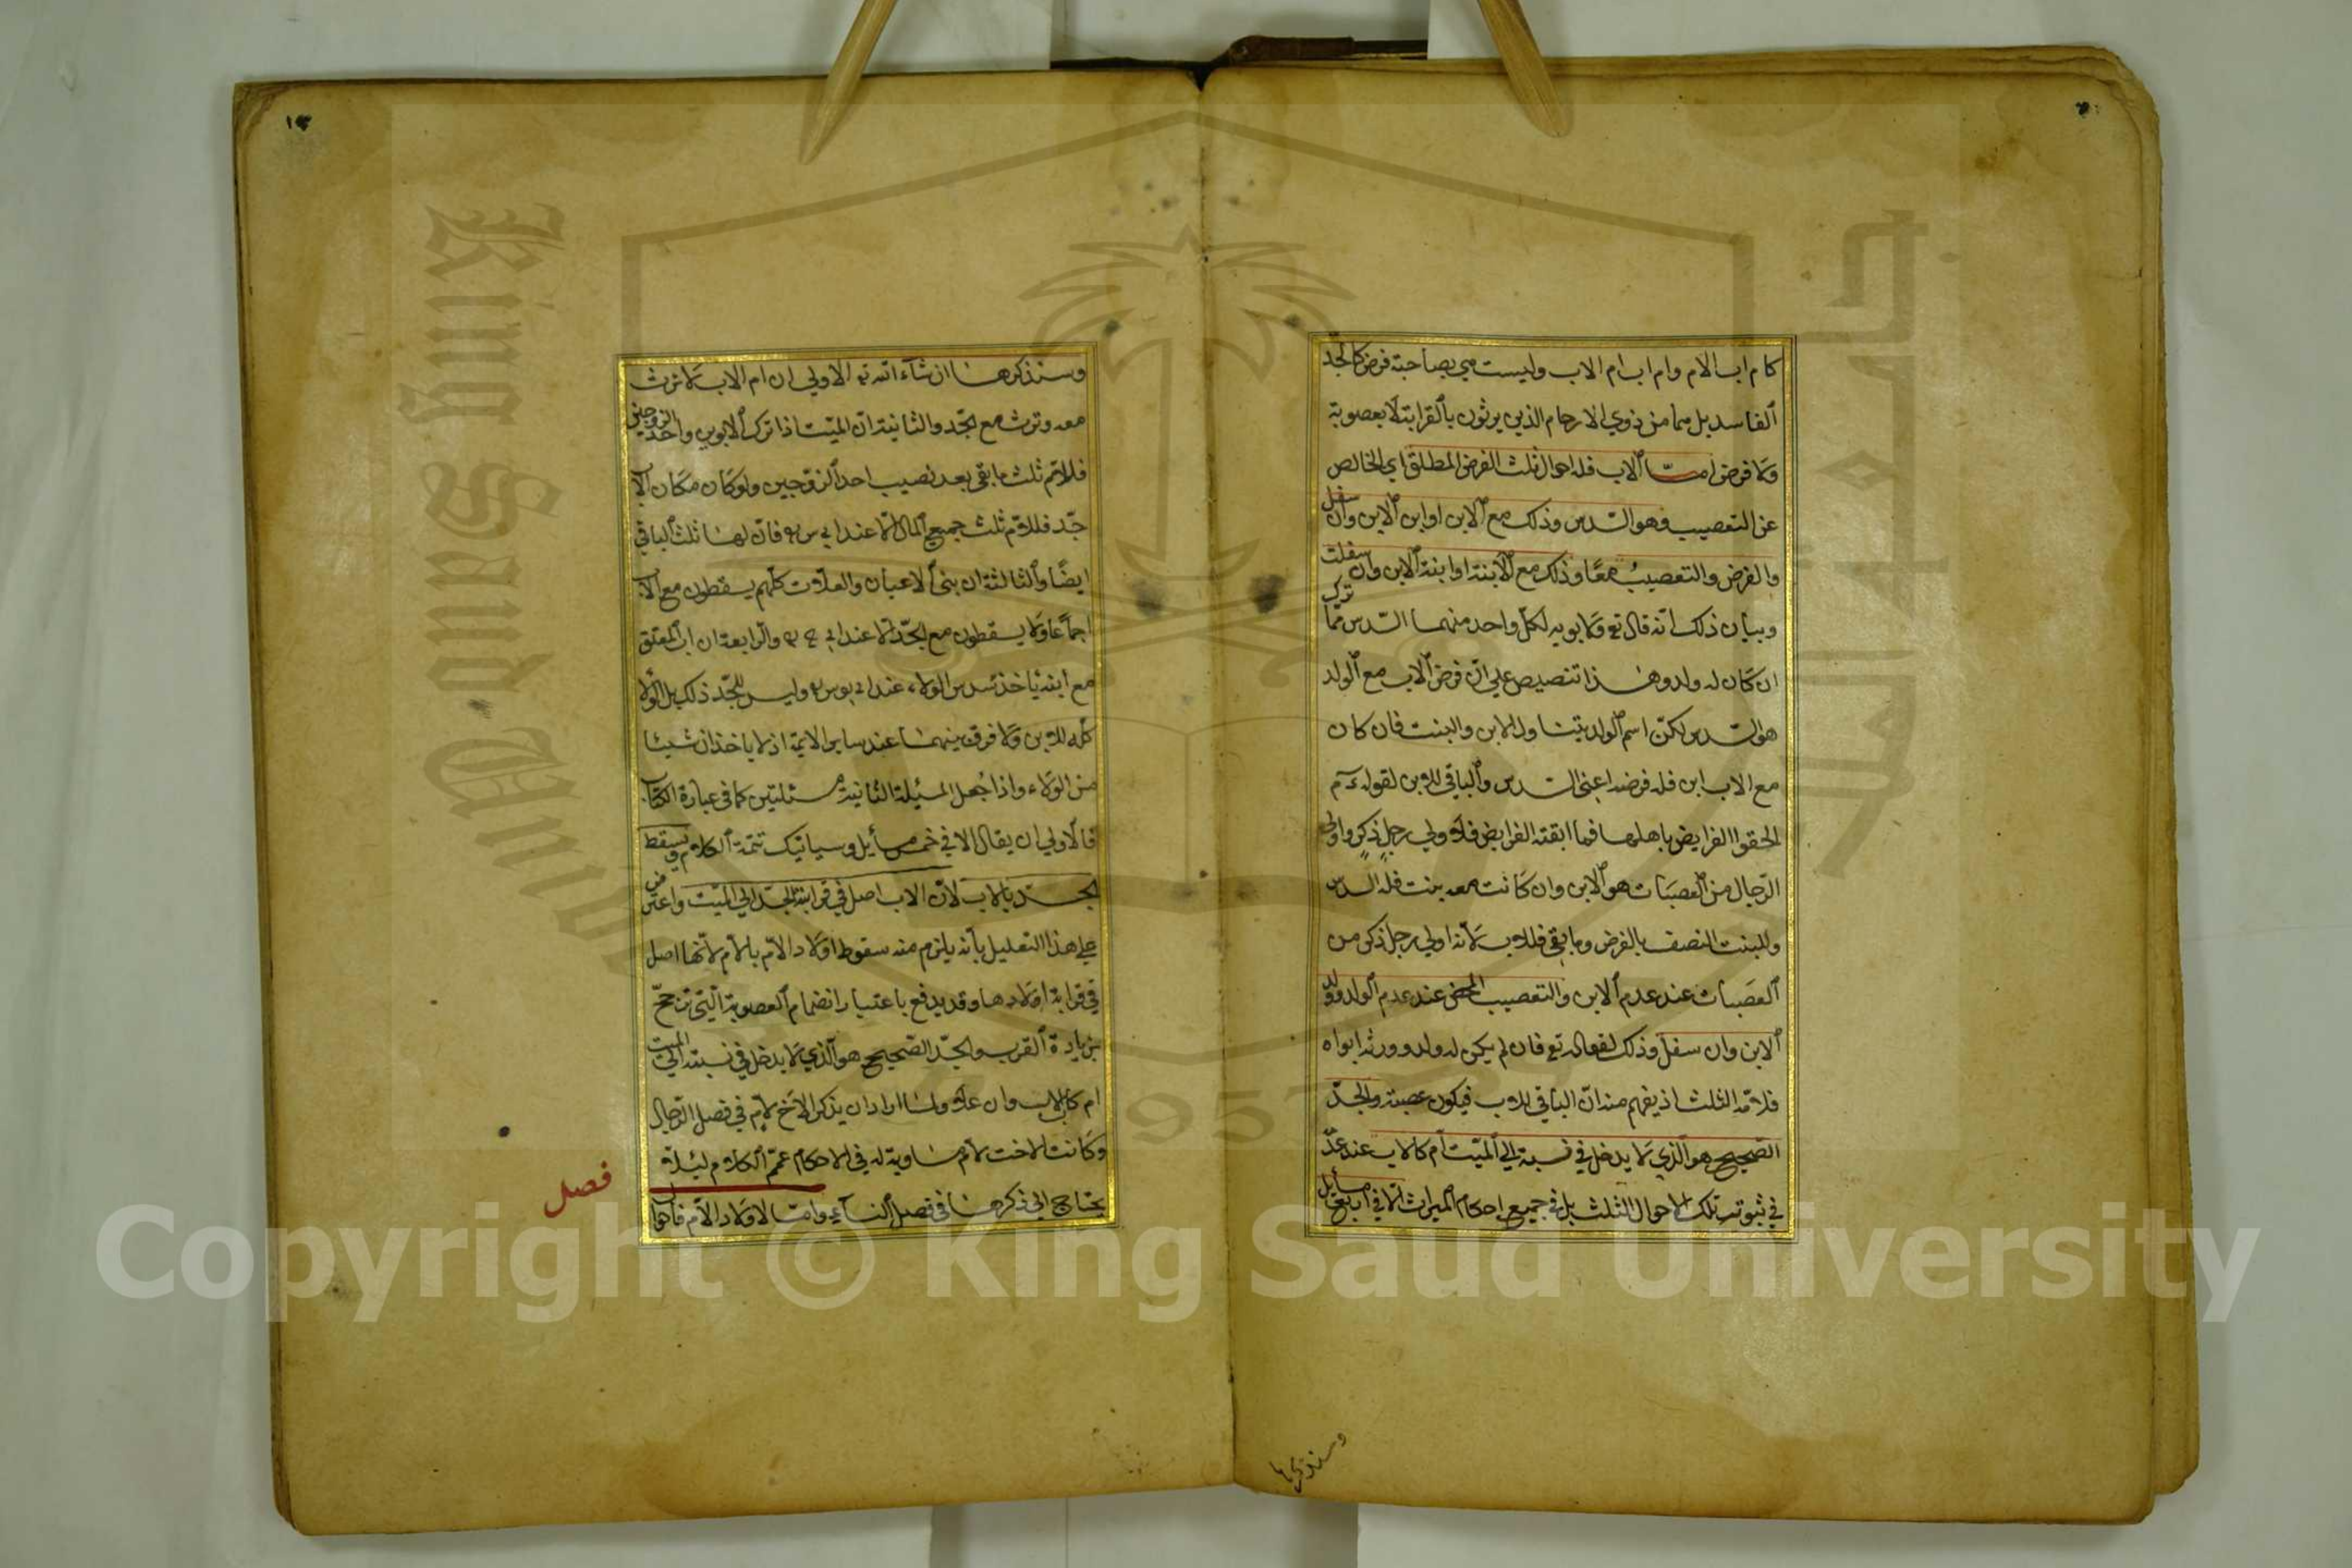 كام اب الام وام اب ام الاب وليست هي بصاحبة فرض كالجد
الفاسد بل هما من ذوي الارحام الذين يرثون بالقرابة لا بعصوبة
ولا فرض امّا الاب فله احوال ثلث الفرض المطلق اي الخالص
عن التعصيب وهو السّدس وذلك مع الابن او ابن الابن وان سفل
والفرض والتعصيب معًا وذلك مع الابنة او ابنة الابن وان سفلت
وبيان ذلك انه قال تع ولابويه لكلّ واحد منهما السّدس ممّا ترك
ان كان له ولد وهذا تنصيص علي انّ فرض الاب مع الولد
هو السّدس لكنّ اسم الولد يتناول الابن والبنت فان كان
مع الاب ابن فله فرضه اعني السدس والباقي للابن لقوله ءم
الحقوا الفرايض باهلها فما ابقته الفرايض فلاولي رجلٍ ذكرٍ واولي
الرّجال من العصبات هو الابن وان كانت معه بنت فله السدس
وللبنت النصف بالفرض وما بقي فللاب لانه اولي رجل ذكر من
العصبات عند عدم الابن والتعصيب المحض عند عدم الولد وولد
الابن وان سفل وذلك لقوله تع فان لم يكن له ولد وورثه ابواه
فلامّه الثلث اذ يفهم منه انّ الباقي للاب فيكون عصبة والجدّ
الصّحيح هو الّذي لا يدخل في نسبته الي الميّت ام كالاب عند عدمه
في ثبوت تلك الاحوال الثلث بل في جميع احكام الميراث الّا في اربع مسايل
وسنذكرها
١٣
وسنذكرها ان شآء الله تع الاولي ان ام الاب لا ترث
معه وترث مع الجدّ والثانية انّ الميّت اذا ترك الابوين واحد الزوجين
فللامّ ثلث ما بقي بعد نصيب احد الزوّجين ولو كان مكان الاب
جدّ فللامّ ثلث جميع المال الّا عند ابي يوسف فانّ لها ثلث الباقي
ايضًا والثالثة ان بني الاعيان والعلّات كلّهم يسقطون مع الاب
اجماعًا ولا يسقطون مع الجدّ الّا عند ابي ح والرّابعة ان اب المعتق
مع ابنه ياخذ سدس الولاء عند ابي يوسف وليس للجدّ ذلك بل الولاء
كلّه للابن ولا فرق بينهما عند ساير الايمة اذ لا ياخذان شيئا
من الولاء واذا جُعل المسئلة الثانية مسئلتين كما في عبارة الكتاب
فالاولي ان يقال الا في خمس مسأيل وسياتيك تتمّة الكلام ويسقط
الجدّ بالاب لانّ الاب اصل في قرابة الجدّ الي الميّت واعترض
علي هذا التعليل بأنه يلزم منه سقوط اولاد الامّ بالام لانّها اصل
في قرابة اولادها وقد يدفع باعتبار انضمام العصوبة الّتي ترجّح
بزيادة القرب والجدّ الصّحيح هو الّذي لا يدخل في نسبته الي الميت
ام كاب الاب وان علا ولمّا اراد ان يذكر الاخ لامّ في فصل الرّجال
وكانت الاخت لام مساوية له في الاحكام عمّم الكلام لئلا
يحتاج الي ذكرها في فصل النسآء وامّا لاولاد الامّ فاحوال
فصل